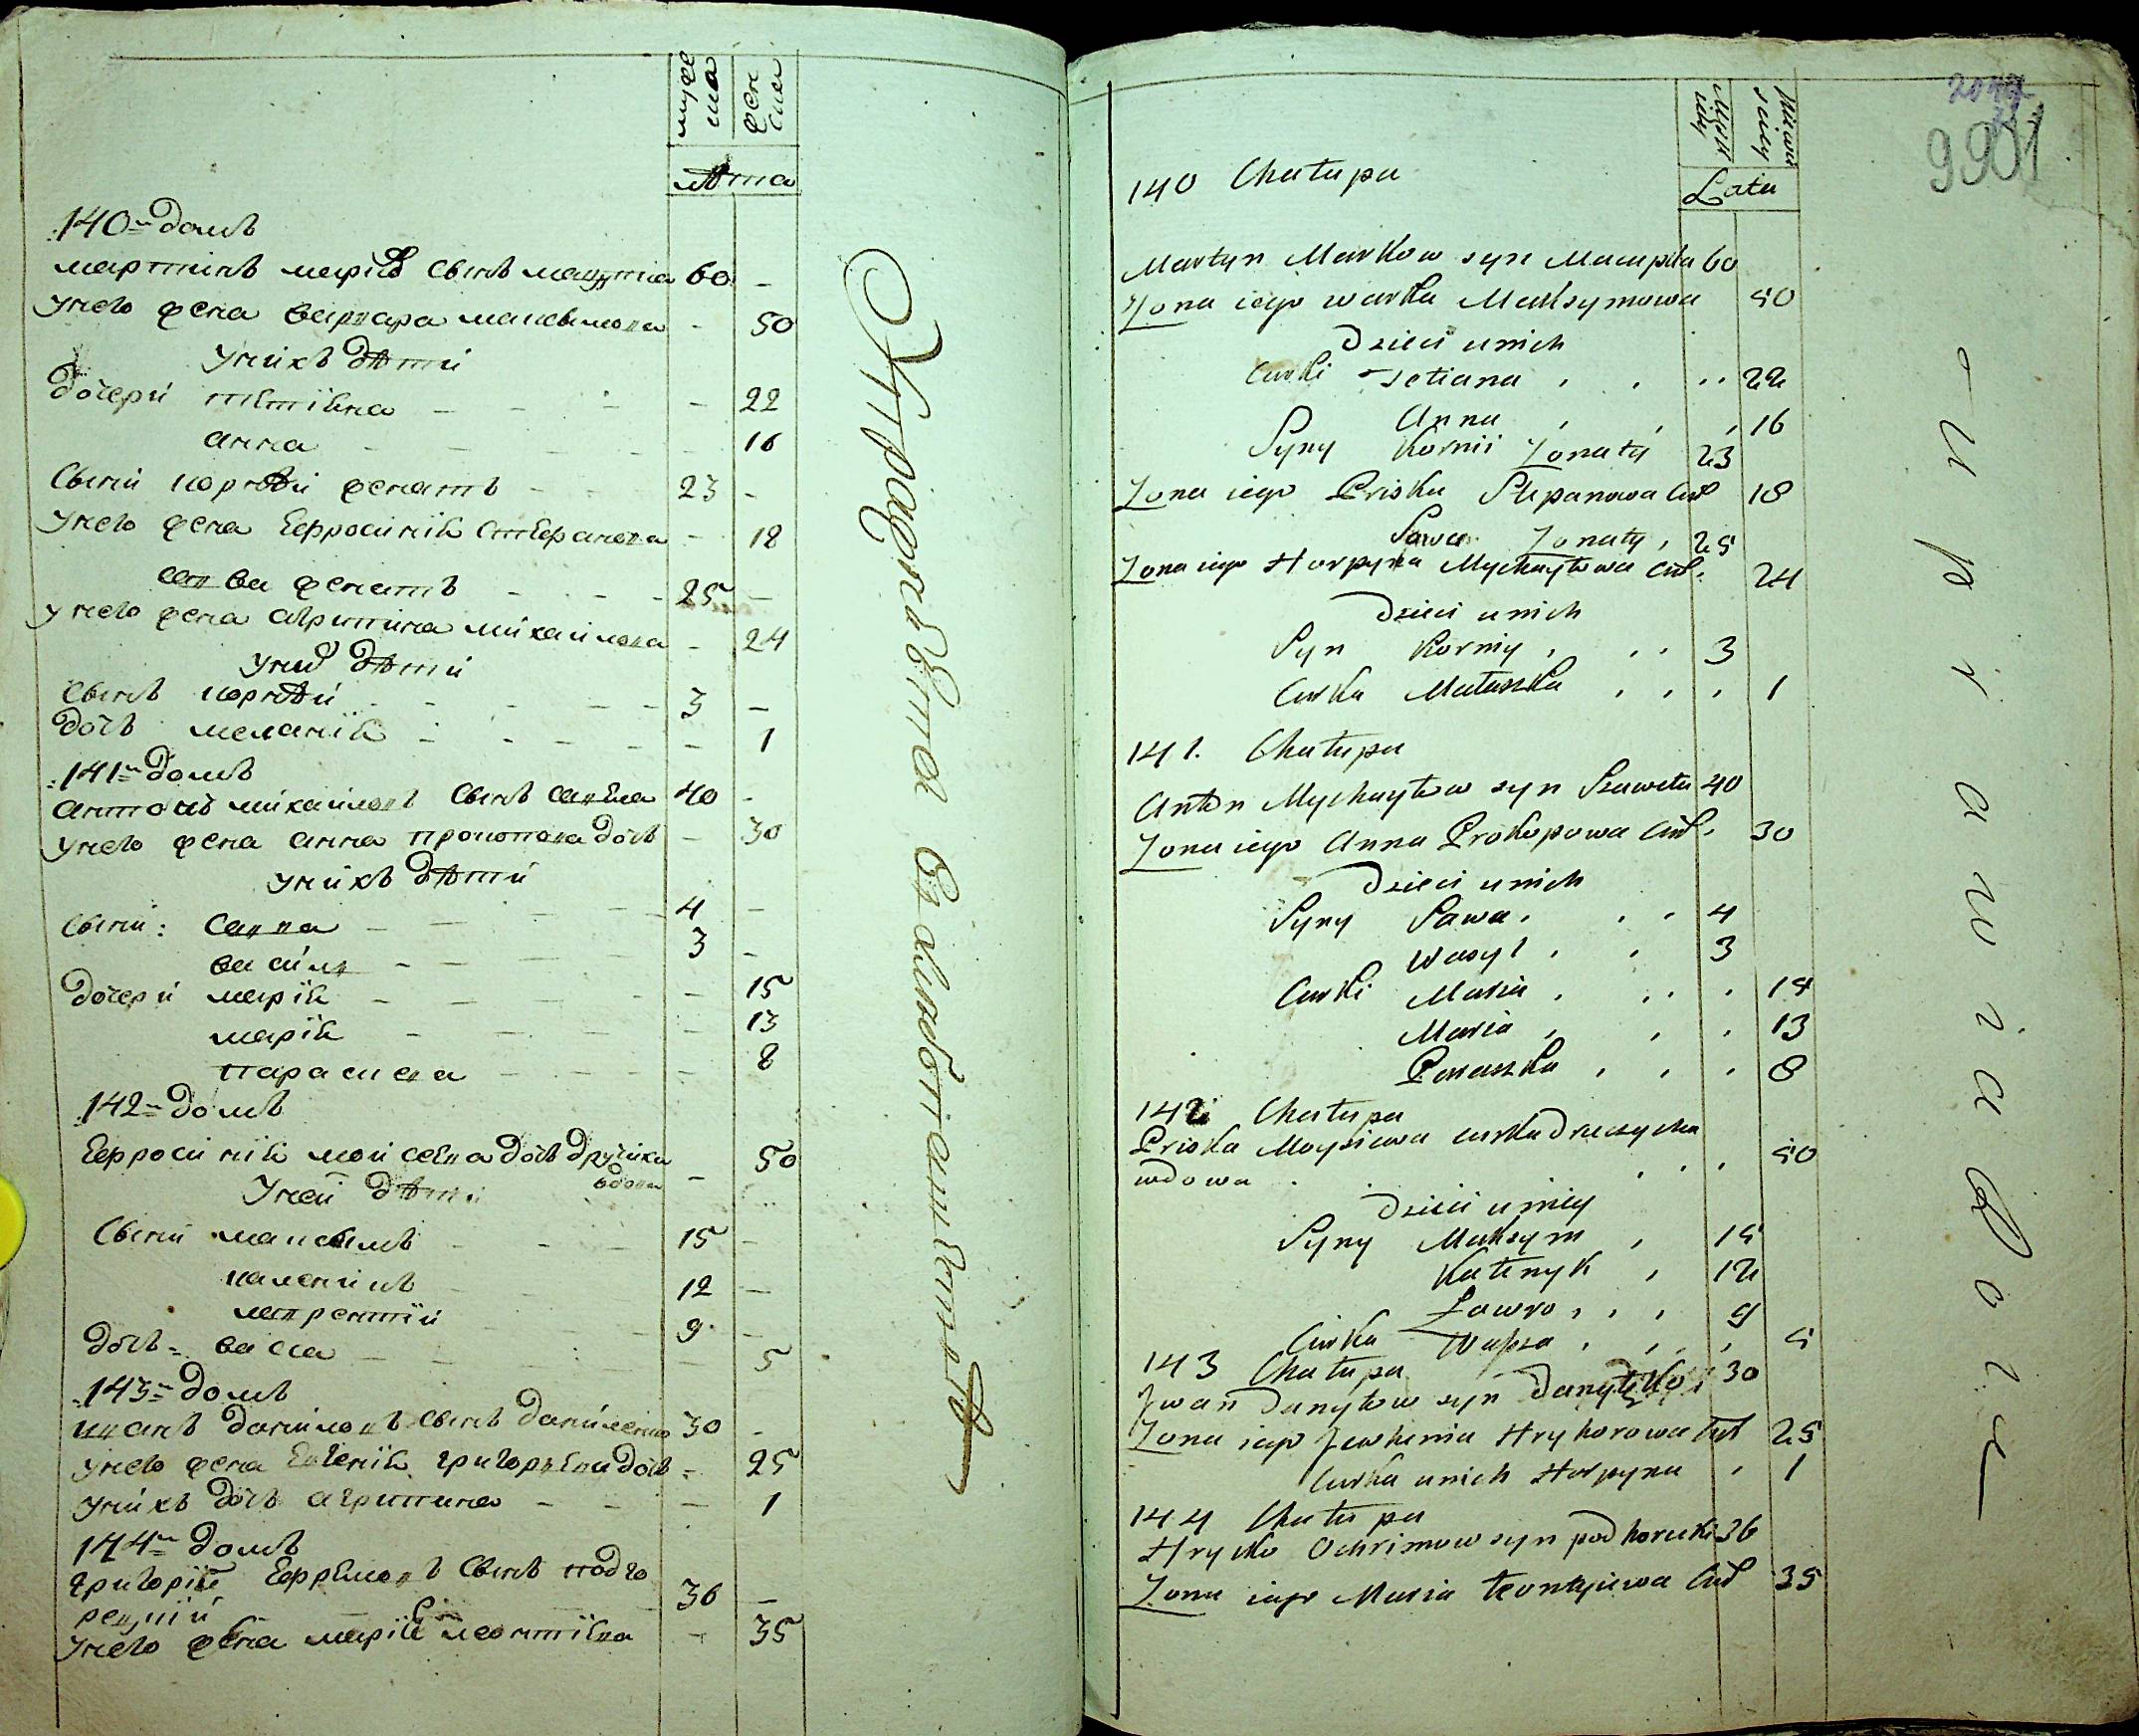 муже
ска
жен
ска
лѣта
140й домъ
мартинъ марков сынъ мацупка 60 -
у него жена варвара максимова - 50
у них дѣти
дочери татiяна - 22
анна - 16
сыни корнѣй женатъ - 23 -
у него жена Еѵфросинiя Степанова - 18
савва женатъ - 25 -
у него жена агрипина михайлова - 24
у них дѣти
сынъ корнѣй - 3 -
дочь меланiя - - 1
141й домъ
антонъ михайловъ сынъ савела 40 -
у него жена анна прокопова дочь - 30
у нихъ дѣти
сыни: савва - 4 -
василь - 3 -
дочери марiя - 15
марiя - 13
параскева - 8
142й домъ
Еѵфросинiя мойсеева дочь дручиха
вдова - 50
у ней дѣти
сыни максимъ 15 -
каленикъ 12 -
лаврентiй 9 -
дочь васса - 5
143й домъ
иванъ даниловъ сынъ даниленко 30 -
у него жена Евгенiя григорьева дочь - 25
у нихъ дочь агрипина - - 1
144й домъ
григорiй Ефремовъ сынъ подго
36 -
у него жена марiя леонтiева - 35
Mȩzk
Latu
9901
140 Chałupa
Martyn Markow syn Macupka 60
Żona iego warka Maksymowa 50
Dzieci u nich
Curki Tetiana 22
Anna 16
Syny Kornii Zonaty 23
Zona iego Priska Stepanowa cur 18
Sawa Zonaty 25
Zona iego Horpyna Mychayłowa cur. 24
Dzieci u nich
Syn Korniy 3
Curka Małaszka 1
141. Chałupa
Anton Mychayłow syn Szaweła 40
Zona iego Anna Prokopowa cur. 30
Dzieci u nich
Syny Sawa 4
Wasyl 3
Curki Maria 15
Maria 13
Paraszka 8
142 Chałupa
Priska Moysiewa curka Druczycha
wdowa 50
Dzieci u niey
Syny Maksym 15
Kałenyk 12
Ławro 9
Curka Wassa 5
143 Chałupa
Iwan Danyłow syn Danyłko 30
Zona iego Jewhenia Hryhorowa cur 25
Curka u nich Horpyna 1
144 Chałupa
Hryćko Ochrimow syn podhorecki 36
Zona iego Maria Leontyiewa cur 35